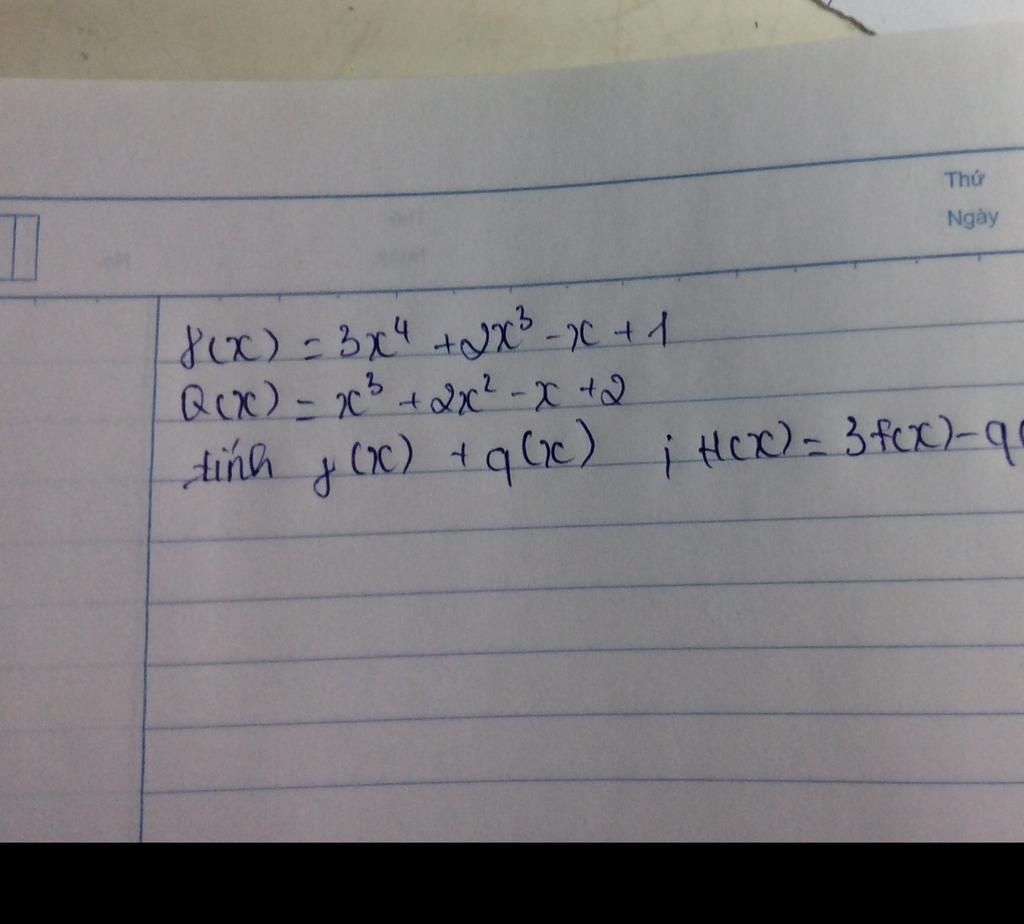 Thứ
Ngày
f(x) = 3x⁴ + 2x³ - x + 1
Q(x) = x³ + 2x² - x + 2
tính f(x) + q(x) ; H(x) = 3f(x) - q(